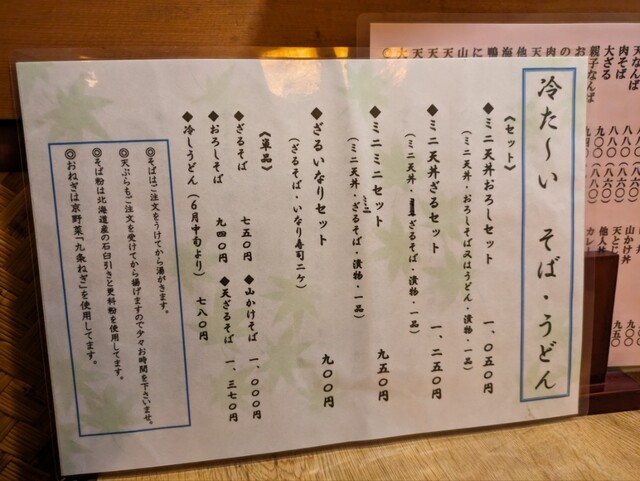 冷た〜い そば・うどん
《セット》
◆ミニ天丼おろしセット 一、〇五〇円
（ミニ天丼・おろしそば又はうどん・漬物・一品）
◆ミニ天丼ざるセット 一、二五〇円
（ミニ天丼・ざるそば・漬物・一品）
◆ミニミニセット 九五〇円
（ミニ天丼・ざるそば・漬物・一品）
◆ざるいなりセット 九〇〇円
（ざるそば・いなり寿司二ケ）
《単品》
◆ざるそば 七五〇円
◆山かけそば 一、〇〇〇円
◆おろしそば 九四〇円
◆天ざるそば 一、三七〇円
◆冷しうどん（6月中旬より） 七八〇円
◎そばはご注文をうけてから湯がきます。
◎天ぷらもご注文を受けてから揚げますので少々お時間を下さいませ。
◎そば粉は北海道産の石臼引きと更科粉を使用してます。
◎おねぎは京野菜「九条ねぎ」を使用してます。
天なんば
肉そば
大ざる
親子なんば
山かけ丼
天とじ
他人丼
カレー